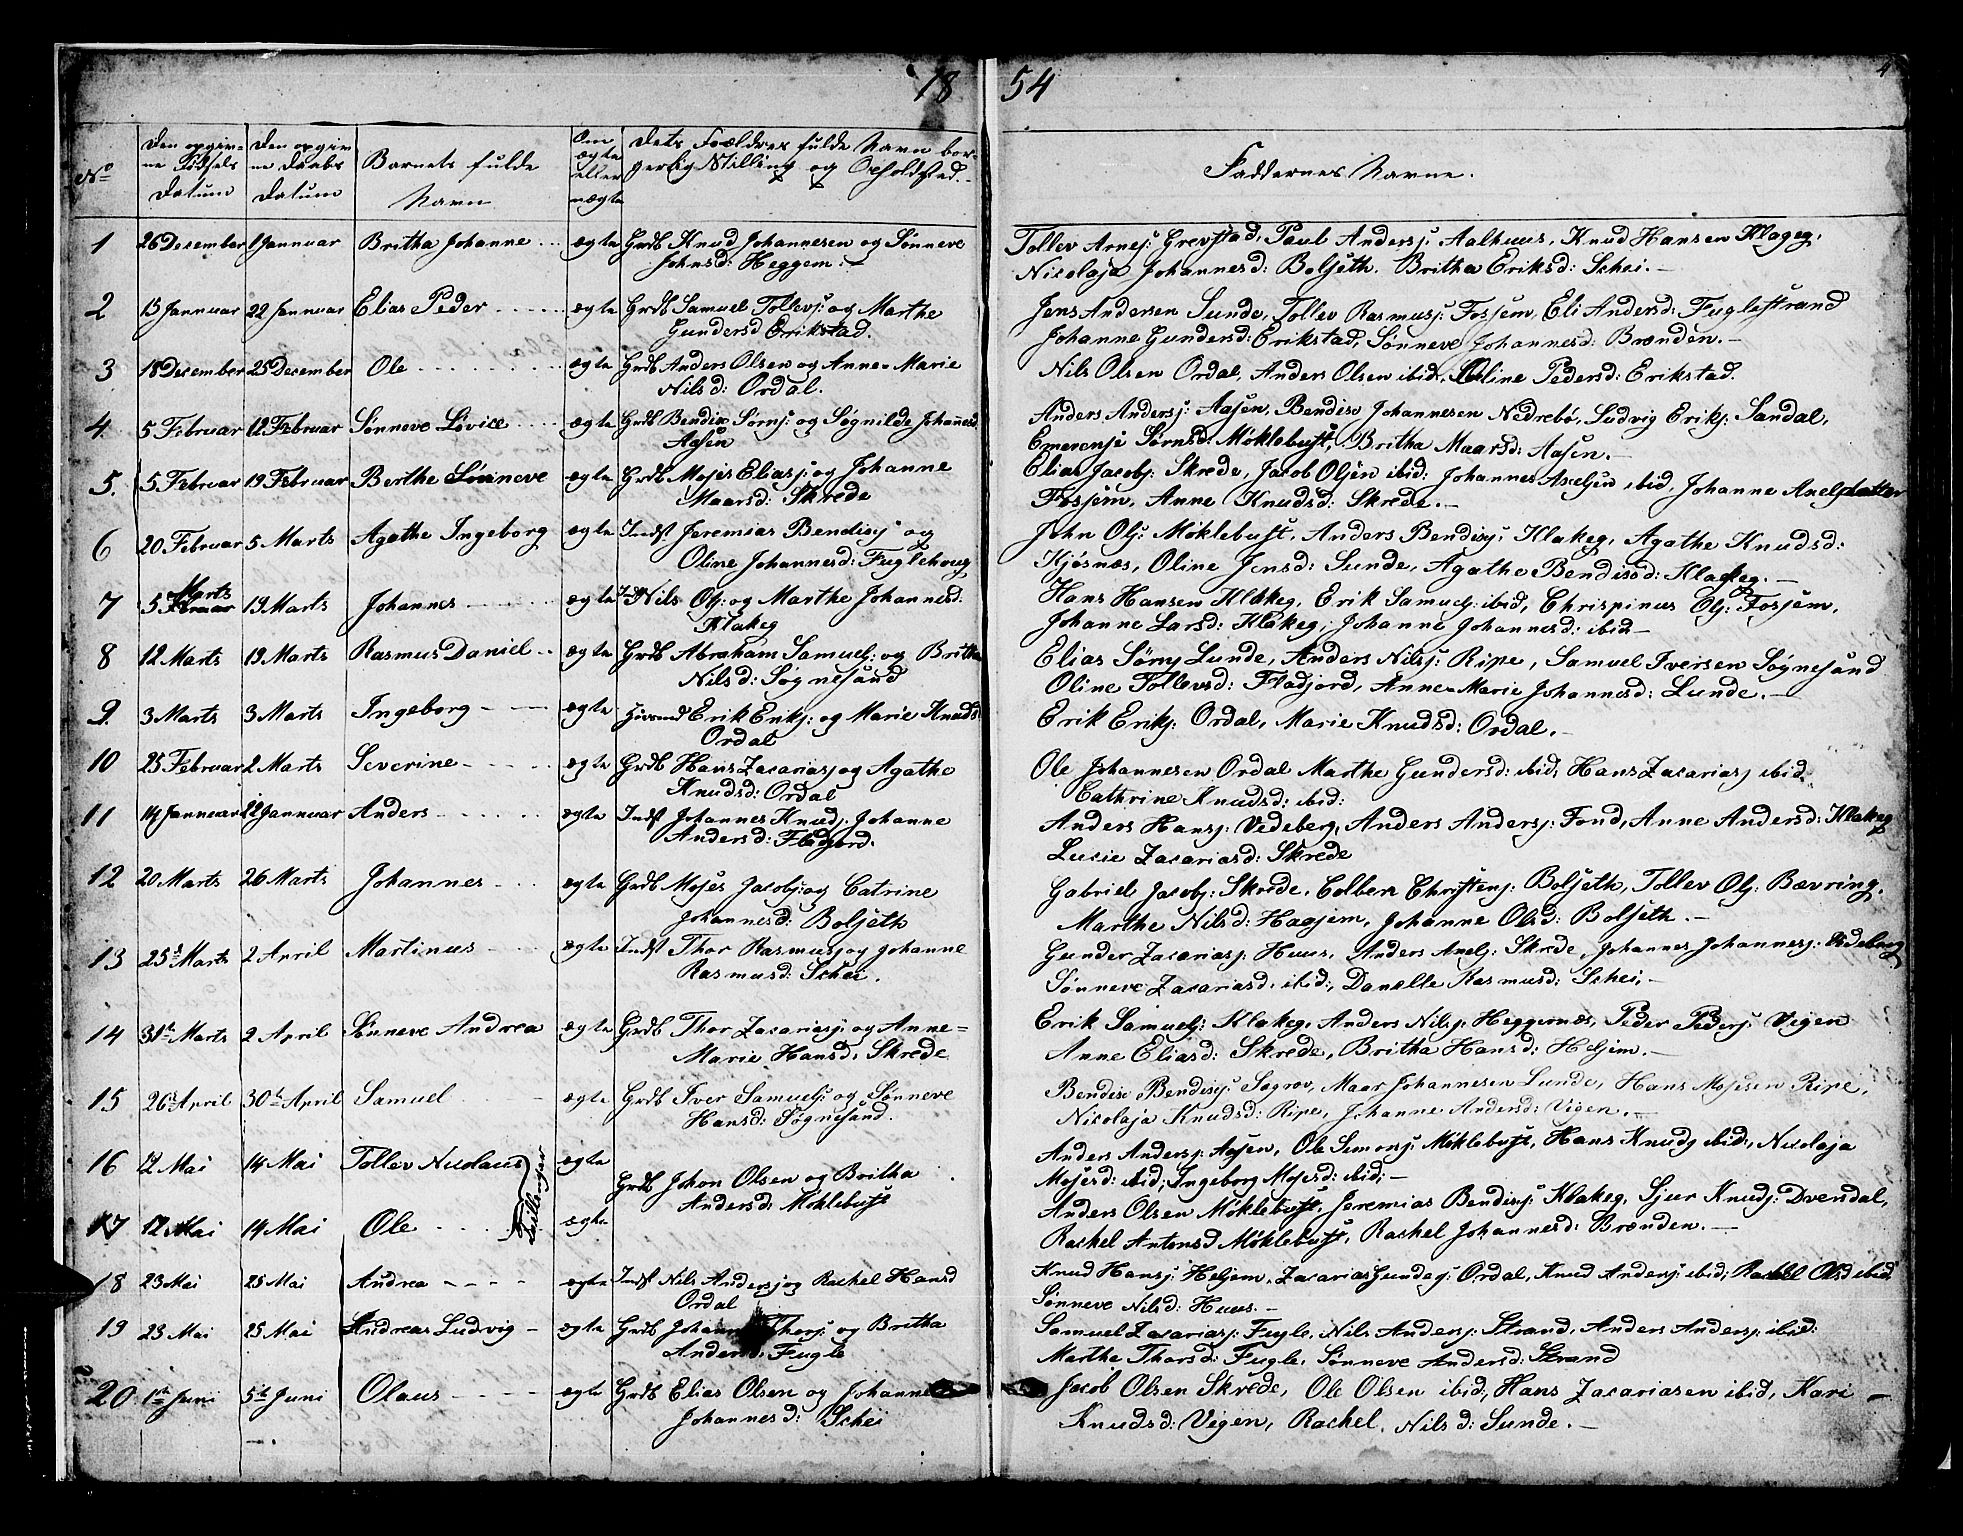 1854
4
No
Den opgivne Fødsels Datum
Den opgivne Daabs Datum
Barnets fulde Navn
Om ægte eller uægte
Dets Forældres fulde Navn borgerlig Stilling og Opholdsted.
Faddernes Navne.
1 26 December 1 Januuar Britha Johanne ægte Grdb Knud Johannesen og Sønneve
Johnsd: Heggem.
Tollev Arnesj: Grevstad, Paul Andersj: Aalhuus, Knud Hansen Klageg,
Nicolaja Johannesd: Boljeth. Britha Eriksd: Schei.
2 15 Januuar 22 Januuar Elias Peder ægte Grdb Samuel Tollevsj: og Marthe
Gundersd Erikstad.
Jens Andersen Sunde, Tollev Rasmusj: Fosjem, Eli Andersd: Fuglestrand
Johanne Gundersd: Erikstad, Sønneve Johannesd: Brænden.
3 18 December 25 December Ole ægte Grdb Anders Olsen og Anne-Marie
Nilsd: Ordal.
Nils Olsen Ordal, Anders Olsen ibid, Oline Pedersd: Erikstad.
4 5 Februar 12 Februar Sønneve Lovice ægte Grdb Bendix Sørnsj: og Søgnilde Johannesd
Aasen
Anders Andersj: Aasen, Bendix Johannesen Nedrebø, Ludvig Eriksj: Sandal,
Emerensje Sørnsd: Møklebust, Britha Maarsd: Aasen.
5. 5 Februar 19 Februar Berthe Sønneve ægte Grdb Moses Eliasj: og Johanne
Maarsd: Skrede
Elias Jacobj: Skrede, Jacob Olsen ibid: Johannes Axelsen ibid, Johanne Axelsdatter
Fosjem, Anne Knudsd: Skrede.
6 20 Februar 5 Marts Agathe Ingeborg ægte Indst Jeremias Bendixj og
Oline Johannesd: Fuglehoug
John Olsj: Møklebust, Anders Bendixj: Klakeg, Agathe Knudsd:
Kjøsnæs, Oline Jensd: Sunde, Agathe Bendixsd: Klakeg.
7 5 Marts 19 Marts Johannes ægte Nils Olsj: og Marthe Johannesd:
Klakeg
Hans Hansen Klakeg, Erik Samuelsj: ibid, Chrispinus Olsj: Fosjem,
Johanne Larsd: Klakeg, Johanne Johannesd: ibid
8 12 Marts 19 Marts Rasmus Daniel ægte Grdb Abraham Samuelsj: og Britha
Nilsd: Sognesand
Elias Sørnsj Lunde, Anders Nilsj: Ripe, Samuel Iversen Sognesand
Oline Tollevsd: Fladjord, Anne-Marie Johannesd: Lunde.
9. 3 Marts 3 Marts Ingeborg ægte Erik Eriksj: og Marie Knuds
Ordal
Erik Eriksj: Ordal, Marie Knudsd: Ordal.
10 25 Februar 2 Marts Severine ægte Grdb Hans Zacariasj og Agathe
Knudsd: Ordal
Ole Johannesen Ordal Marthe Gundersd: ibid, Hans Zacariasj ibid
Cathrine Knudsd: ibid:
11 14 Januuar 22 Januuar Anders ægte Indst Johannes Knudsj: Johanne
Andersd: Fladjord.
Anders Hansj: Vedeberg, Anders Andersj: Fond, Anne Andersd: Klakeg
Lucie Zacariasd: Skrede
12 20 Marts 26 Marts Johannes ægte Grdb Moses Jacobj: og Catrine
Johannesd: Boljeth
Gabriel Jacobj: Skrede, Colbein Christensj: Boljeth, Tollev Olsj: Bævring,
Marthe Nilsd: Haajem, Johanne Olsd: Boljeth.
13 25d Marts 2 April Martinus ægte Indst Thor Rasmusj og Johanne
Rasmusd: Schei.
Gunder Zacariasj: Huus, Anders Axelsj: Skrede, Johannes Johannesj: Vedeberg
Sønneve Zacariasd: ibid:, Danielle Rasmusd: Schei,
14 31te Marts 2 April Sønneve Andrea ægte Grdb Thor Zacariasj: og Anne=
Marie Hansd: Skrede
Erik Samuelsj: Klakeg, Anders Nilsj: Heggernæs, Peder Pedersj: Veigen
Anne Eliasd: Skrede, Britha Hansd: Heljem.
15 26 April 30te April Samuel ægte Grdb Iver Samuelsj: og Sønneve
Hansd: Sognesand.
Bendix Bendixsj: Sagrov, Maar Johannesen Lunde, Hans Mosesen Ripe,
Nicolaja Knudsd: Ripe, Johanne Andersd: Vigen.
16 12 Mai 14 Mai Tollev Nicolaus ægte
Tvillinger
Grdb John Olsen og Britha
Andersd: Møklebust
Anders Andersj: Aasen, Ole Simonsj: Møklebust, Hans Knudsj ibid:, Nicolaja
Mosesd: ibid; Ingeborg Mosesd: ibid;
17 12 Mai 14 Mai Ole ægte
Anders Olsen Møklebust, Jeremias Bendixsj: Klakeg, Sjur Knudsj: Dvendal,
Rachel Antonsd Møklebust, Rachel Johannesd: Brænden.
18 23 Mai 25 Mai Andrea ægte Indst Nils Andersj og Rachel Hansd
Ordal
Knud Hansj: Heljem, Zacarias Gundersj: Ordal, Knud Andersj: ibid; Rachel Olsd ibid
Sønneve Nilsd: Huus.
19 23 Mai 25 Mai Andreas Ludvig ægte Grdb Johan Thorsj: og Britha
Andersd: Fugle
Samuel Zacariasj: Fugle, Nils Andersj: Strand, Anders Andersj: ibid:
Marthe Thorsd: Fugle, Sønneve Andersd: Strand
20 1te Juni 5te Juni Olaus ægte Grdb Elias Olsen og Johanne
Johannesd: Schei
Jacob Olsen Skrede, Ole Olsen ibid, Hans Zacariasen ibid, Kari
Knudsd: Vigen, Rachel Nilsd: Sunde.